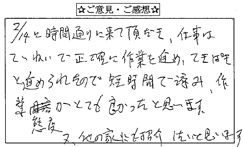 ☆ご意見・ご感想☆
2/14と時間通りに来て頂き、仕事は
ていねいで正確に作業を進め、てきぱき
と進められるので短時間で済み、作
業 態度がとても良かったと思います
又、他の 思います